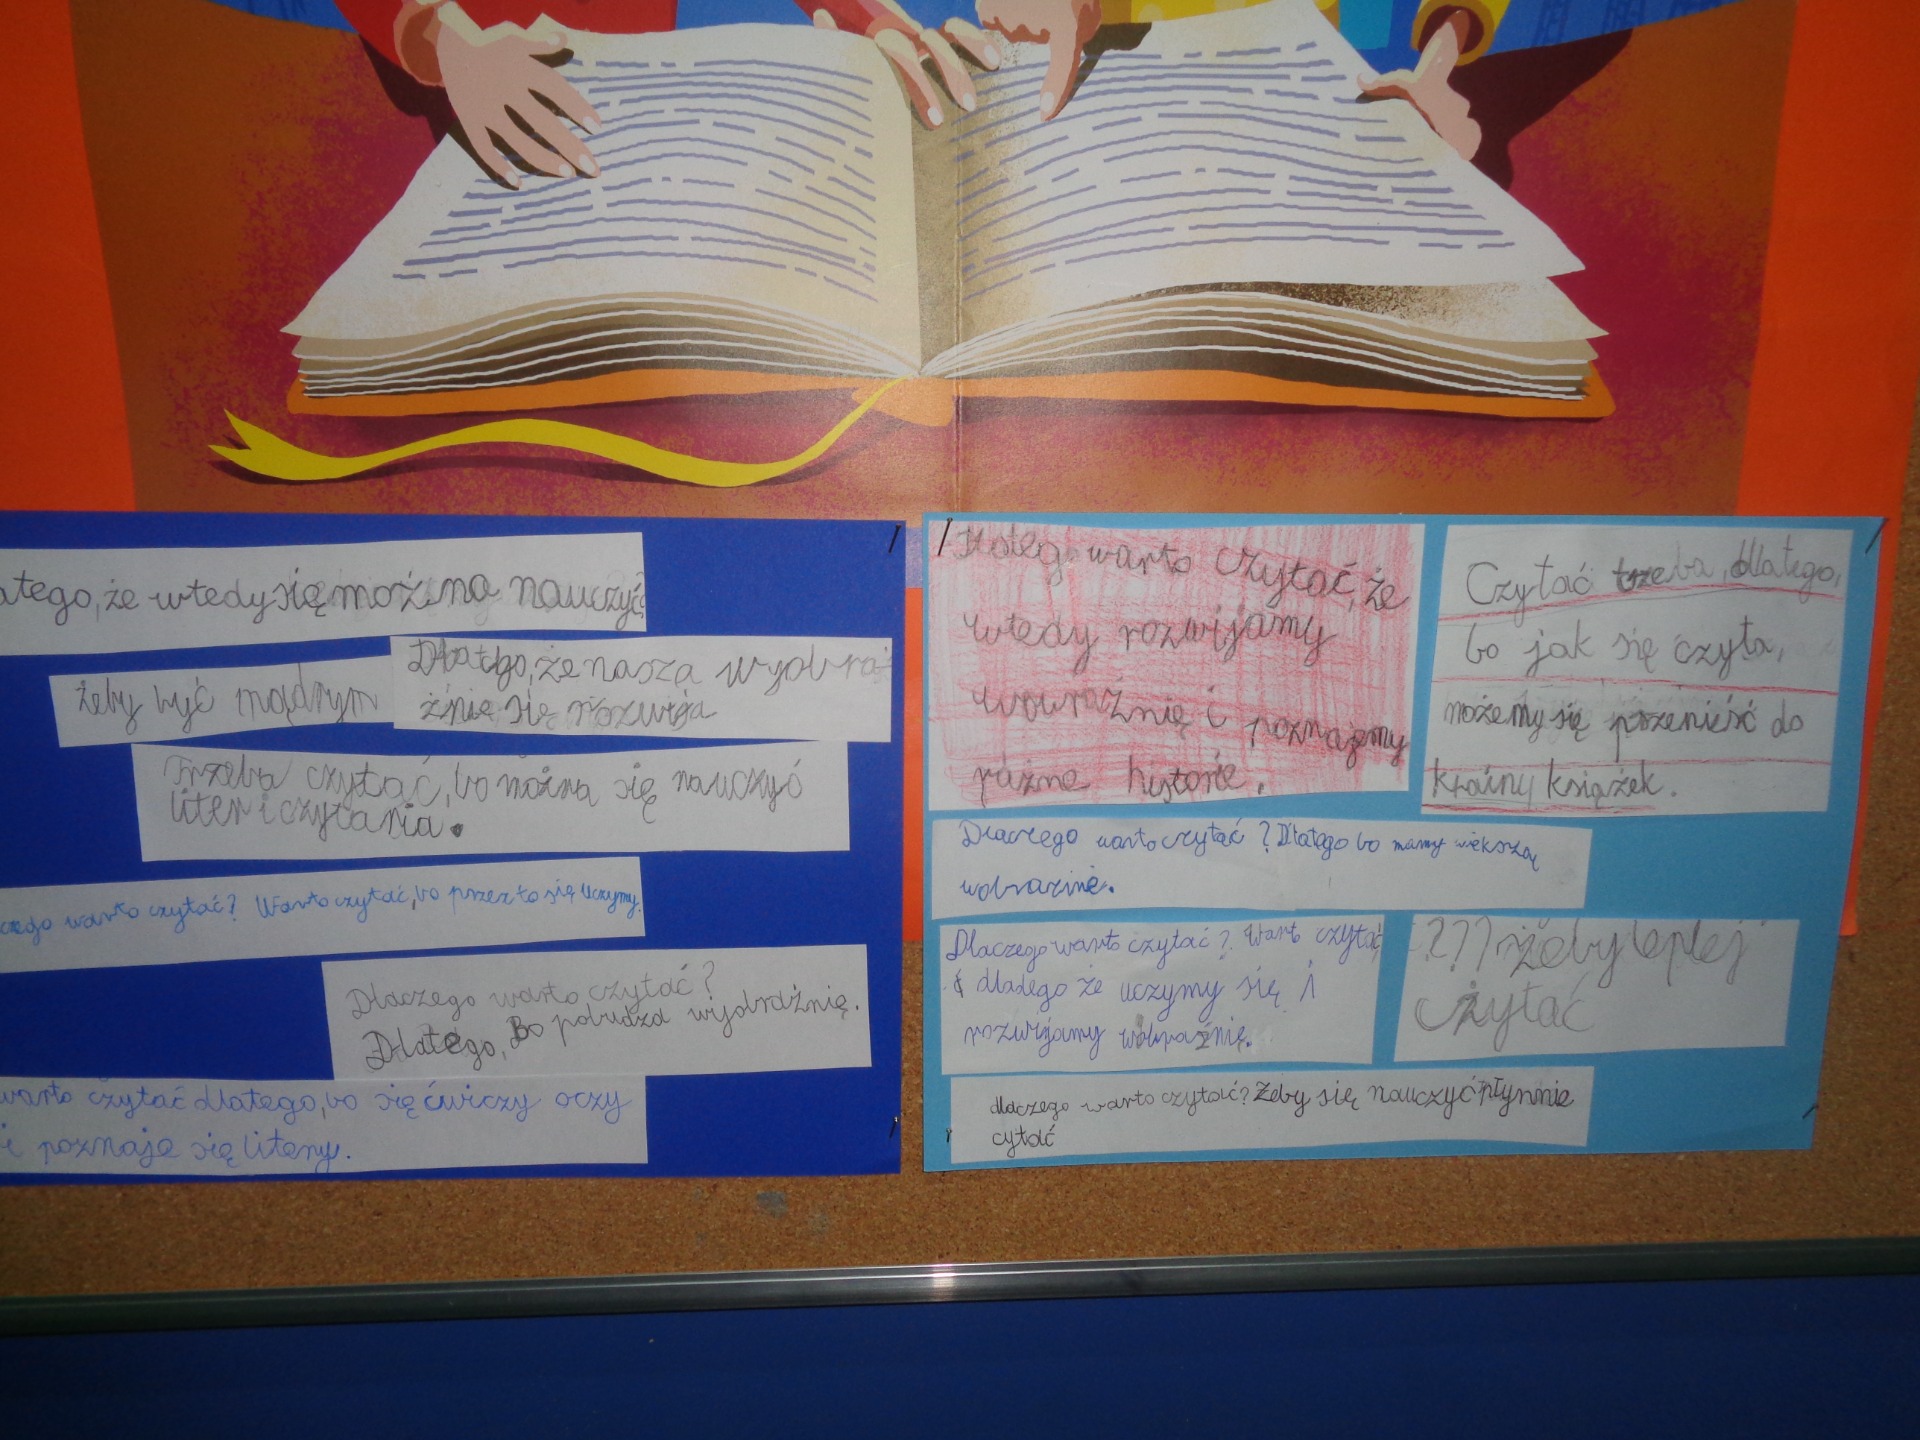 atego, że wtedy się można nauczyć
żeby być mądrym
Dlatego, że nasza wyobra
źnie się rozwija
Trzeba czytać, bo można się nauczyć
liter i czytania.
czego warto czytać? Warto czytać, bo przez to się uczymy.
Dlaczego warto czytać?
Dlatego, Bo pobudza wyobrdźnię.
warto czytać dlatego, bo się ćwiczy oczy
i poznaje się litery.
warto czytać, że
wtedy rozwijamy
i poznajemy
różne historie.
Czytać trzeba, dlatego,
bo jak się czyta,
możemy się przenieść do
krainy książek.
Dlaczego warto czytać? Dlatego bo mamy większą
wobraźnie.
Dlaczego warto czytać? Wart czytać
dladego że uczymy się i
rozwijamy wobraźnię.
??? żeby lepiej
czytać
dlaczego warto czytać? Żeby się nauczyć płynnie
cytać